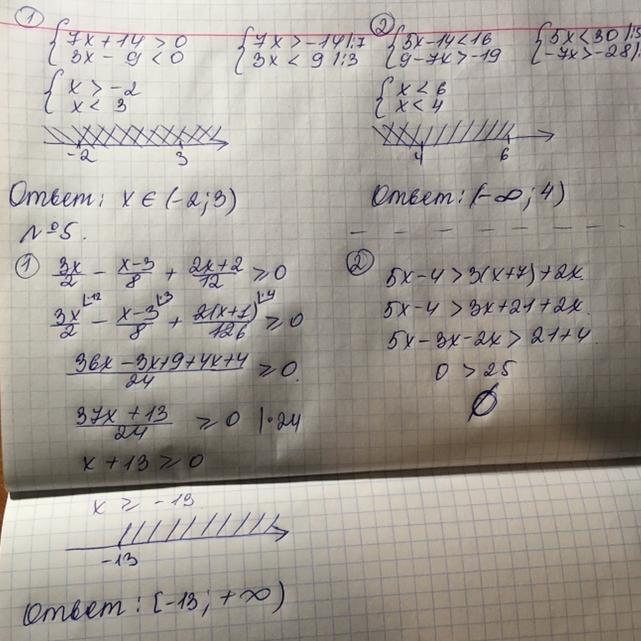 ① { 7x + 14 > 0
3x - 9 < 0
{ 7x > -14 |:7
3x < 9 |:3
{ x > -2
x < 3
-2 3
Ответ: x ∈ (-2; 3)
② { 5x-14<16
9-7x>-19
{ 5x<30 |:5
-7x>-28 |:
{ x < 6
x < 4
4 6
Ответ: (-∞; 4)
№5.
① 3x/2 - x-3/8 + 2x+2/12 ≥ 0
3x/2 |·12 - x-3/8 |·3 + 2(x+1)/126 |·4 ≥ 0
36x - 3x+9+4x+4/24 ≥ 0
37x + 13/24 ≥ 0 |·24
x + 13 ≥ 0
x ≥ -13
-13
Ответ: [-13; +∞)
② 5x-4 > 3(x+7)+2x
5x-4 > 3x+21+2x
5x-3x-2x > 21+4
0 > 25
∅